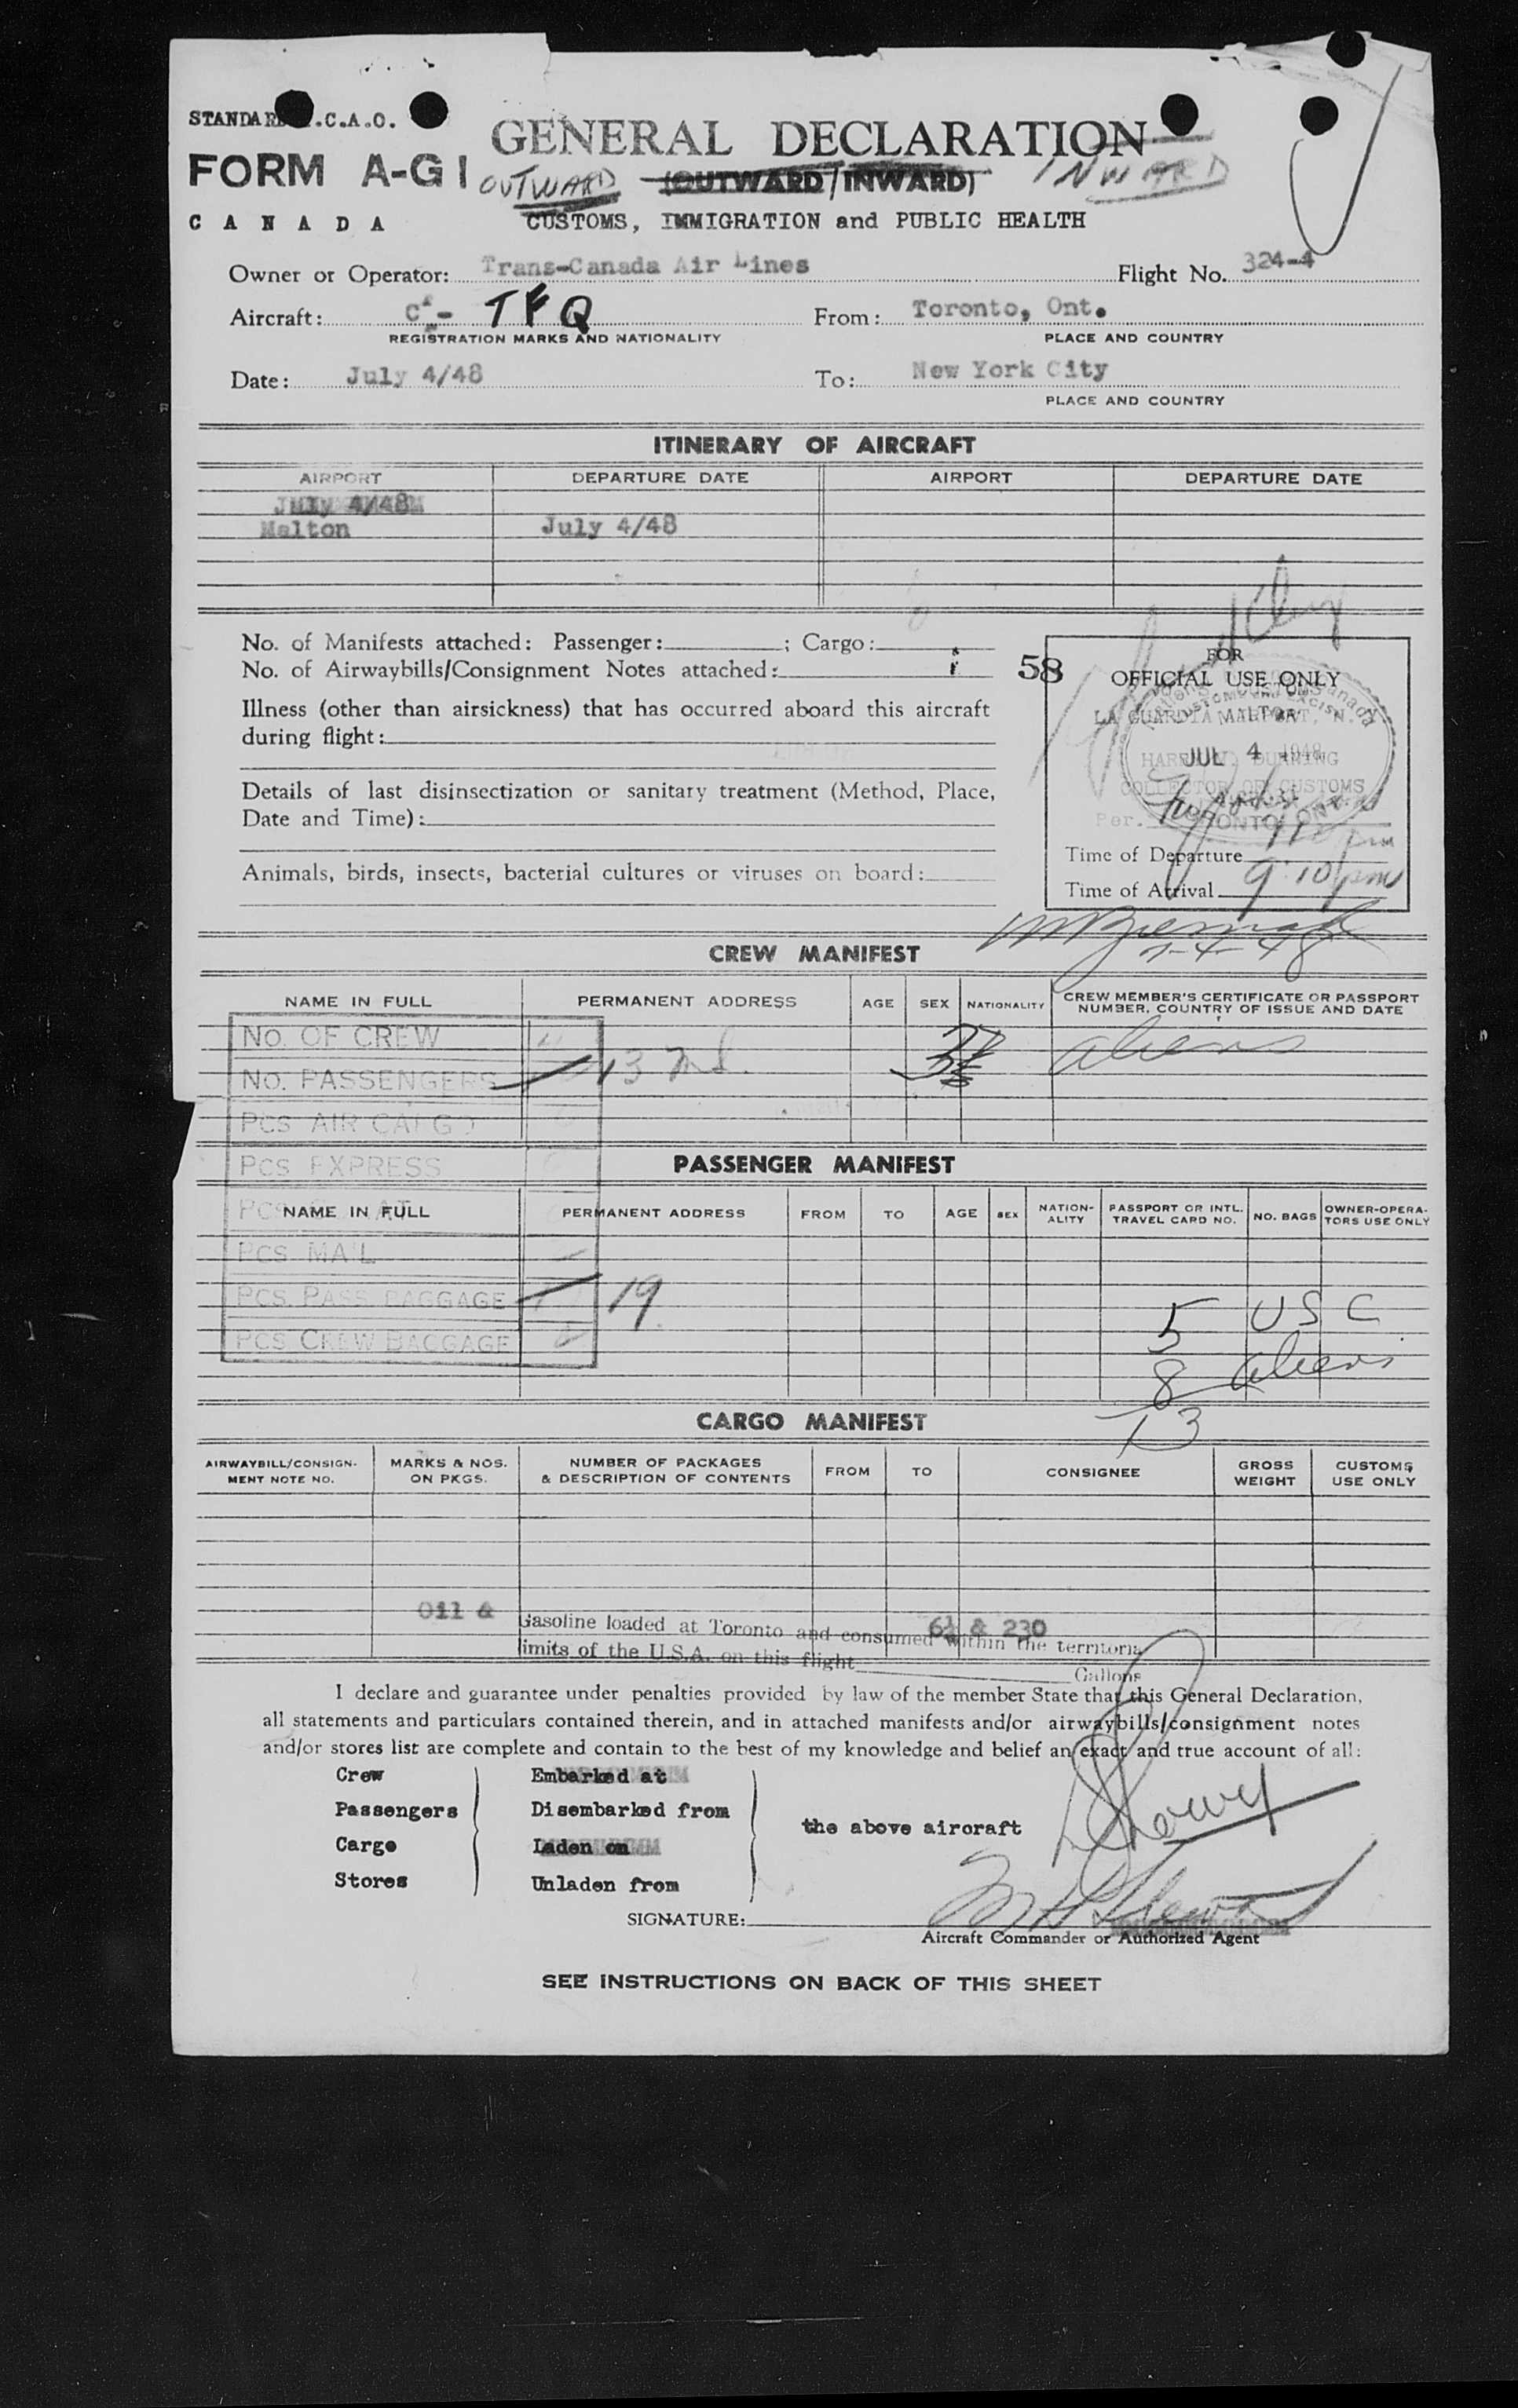 STANDARD I.C.A.O.
FORM A-G1
CANADA
GENERAL DECLARATION
OUTWARD (OUTWARD/INWARD) INWARD
CUSTOMS, IMMIGRATION and PUBLIC HEALTH
Owner or Operator: Trans-Canada Air Lines Flight No. 324-4
Aircraft: CF- TFQ From: Toronto, Ont.
REGISTRATION MARKS AND NATIONALITY PLACE AND COUNTRY
Date: July 4/48 To: New York City
PLACE AND COUNTRY
ITINERARY OF AIRCRAFT
AIRPORT DEPARTURE DATE AIRPORT DEPARTURE DATE
July 4/48
Malton July 4/48
No. of Manifests attached: Passenger: ; Cargo:
No. of Airwaybills/Consignment Notes attached:
58
Illness (other than airsickness) that has occurred aboard this aircraft
during flight:
Details of last disinsectization or sanitary treatment (Method, Place,
Date and Time):
Animals, birds, insects, bacterial cultures or viruses on board:
FOR
OFFICIAL USE ONLY
LA GUARDIA
MALTON
JUL 4 1948
COLLECTOR OF CUSTOMS
Per.
TORONTO, ONT.
Time of Departure
Time of Arrival 9:10 pm
7-4-48
CREW MANIFEST
NAME IN FULL PERMANENT ADDRESS AGE SEX NATIONALITY CREW MEMBER'S CERTIFICATE OR PASSPORT NUMBER, COUNTRY OF ISSUE AND DATE
NO. OF CREW
aliens
NO. PASSENGERS 13
PCS AIR CARGO
PCS EXPRESS
PASSENGER MANIFEST
NAME IN FULL PERMANENT ADDRESS FROM TO AGE SEX NATION-ALITY PASSPORT OR INTL. TRAVEL CARD NO. NO. BAGS OWNER-OPERA-TORS USE ONLY
PCS MAIL
PCS. PASS BAGGAGE 19
5 USC
PCS CREW BAGGAGE
8 aliens
13
CARGO MANIFEST
AIRWAYBILL/CONSIGN-MENT NOTE NO. MARKS & NOS. ON PKGS. NUMBER OF PACKAGES & DESCRIPTION OF CONTENTS FROM TO CONSIGNEE GROSS WEIGHT CUSTOMS USE ONLY
Oil & Gasoline loaded at Toronto and consumed within the territorial
6½ & 230
limits of the U.S.A. on this flight Gallons
I declare and guarantee under penalties provided by law of the member State that this General Declaration,
all statements and particulars contained therein, and in attached manifests and/or airwaybills/consignment notes
and/or stores list are complete and contain to the best of my knowledge and belief an exact and true account of all:
Crew Embarked at
Passengers Disembarked from
the above aircraft
Cargo Laden on
Stores Unladen from
SIGNATURE:
Aircraft Commander or Authorized Agent
SEE INSTRUCTIONS ON BACK OF THIS SHEET